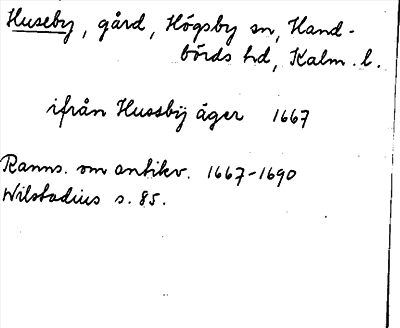 Huseby, gård, Högsby sn, Hand-
börds hd, Kalm. l.
ifrån Hussbÿ äger 1667
Ranns. om antikv. 1667-1690
Wilstadius s. 85.